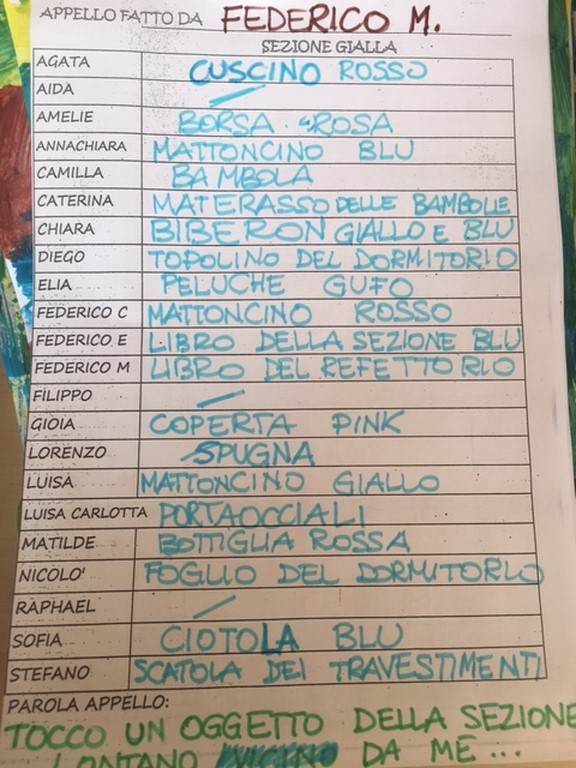 APPELLO FATTO DA FEDERICO M.
SEZIONE GIALLA
AGATA CUSCINO ROSSO
AIDA /
AMELIE BORSA ROSA
ANNACHIARA MATTONCINO BLU
CAMILLA BAMBOLA
CATERINA MATERASSO DELLE BAMBOLE
CHIARA BIBERON GIALLO E BLU
DIEGO TOPOLINO DEL DORMITORIO
ELIA PELUCHE GUFO
FEDERICO C MATTONCINO ROSSO
FEDERICO E LIBRO DELLA SEZIONE BLU
FEDERICO M LIBRO DEL REFETTORIO
FILIPPO /
GIOIA COPERTA PINK
LORENZO SPUGNA
LUISA MATTONCINO GIALLO
LUISA CARLOTTA PORTAOCCIALI
MATILDE BOTTIGLIA ROSSA
NICOLO' FOGLIO DEL DORMITORIO
RAPHAEL /
SOFIA CIOTOLA BLU
STEFANO SCATOLA DEI TRAVESTIMENTI
PAROLA APPELLO:
TOCCO UN OGGETTO DELLA SEZIONE
LONTANO VICINO DA ME ...